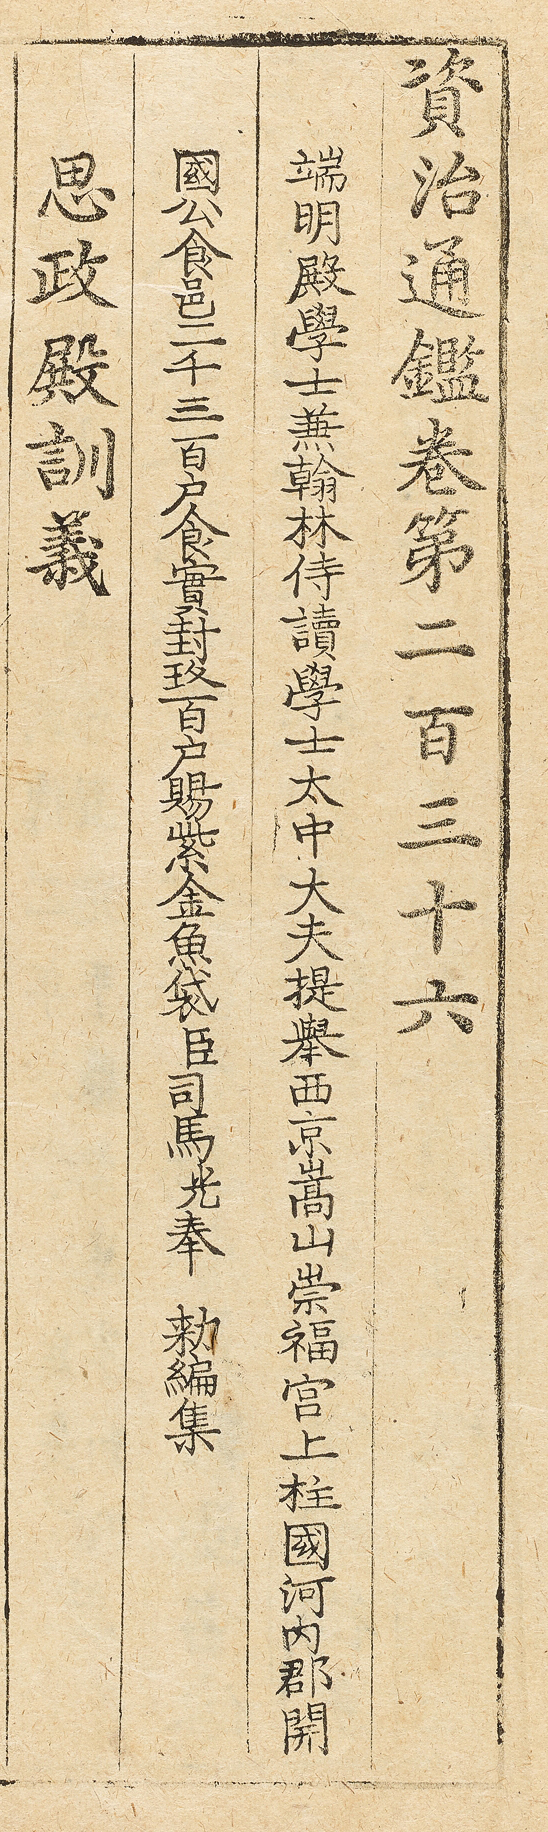 資治通鑑卷第二百三十六
端明殿學士兼翰林侍讀學士太中大夫提舉西京嵩山崇福宮上柱國河內郡開
國公食邑二千三百户食實封玖百户賜紫金魚袋臣司馬光奉 勑編集
思政殿訓義